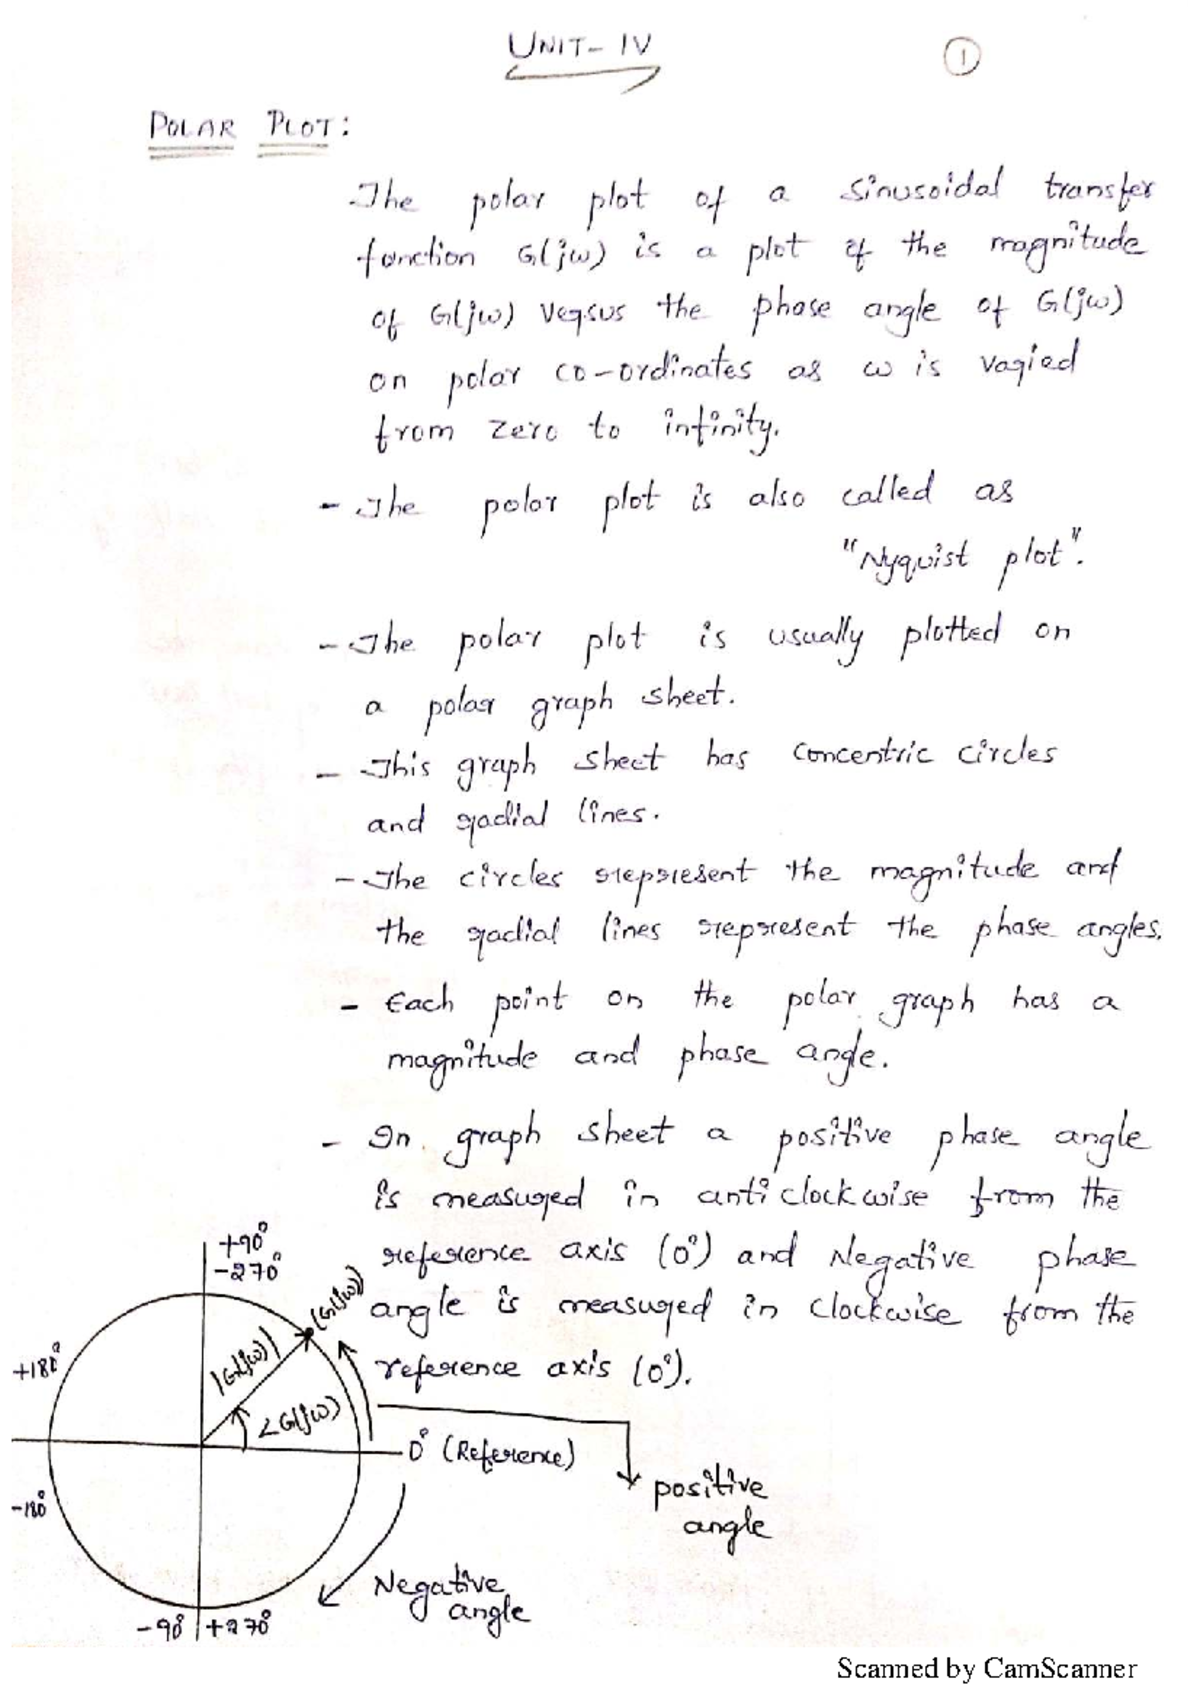 UNIT-IV
1
POLAR PLOT:
The polar plot of a sinusoidal transfer
function G(jω) is a plot of the magnitude
of G(jω) versus the phase angle of G(jω)
on polar co-ordinates as ω is varied
from zero to infinity.
- The polar plot is also called as
"Nyquist plot".
- The polar plot is usually plotted on
a polar graph sheet.
- This graph sheet has concentric circles
and radial lines.
- The circles represent the magnitude and
the radial lines represent the phase angles.
- Each point on the polar graph has a
magnitude and phase angle.
- In graph sheet a positive phase angle
is measured in anti clockwise from the
reference axis (0°) and Negative phase
angle is measured in clockwise from the
reference axis (0°).
+90°
-270°
(G(jω))
|G(jω)|
∠G(jω)
+180°
-180°
0° (Reference)
positive
angle
Negative
angle
-90° +270°
Scanned by CamScanner